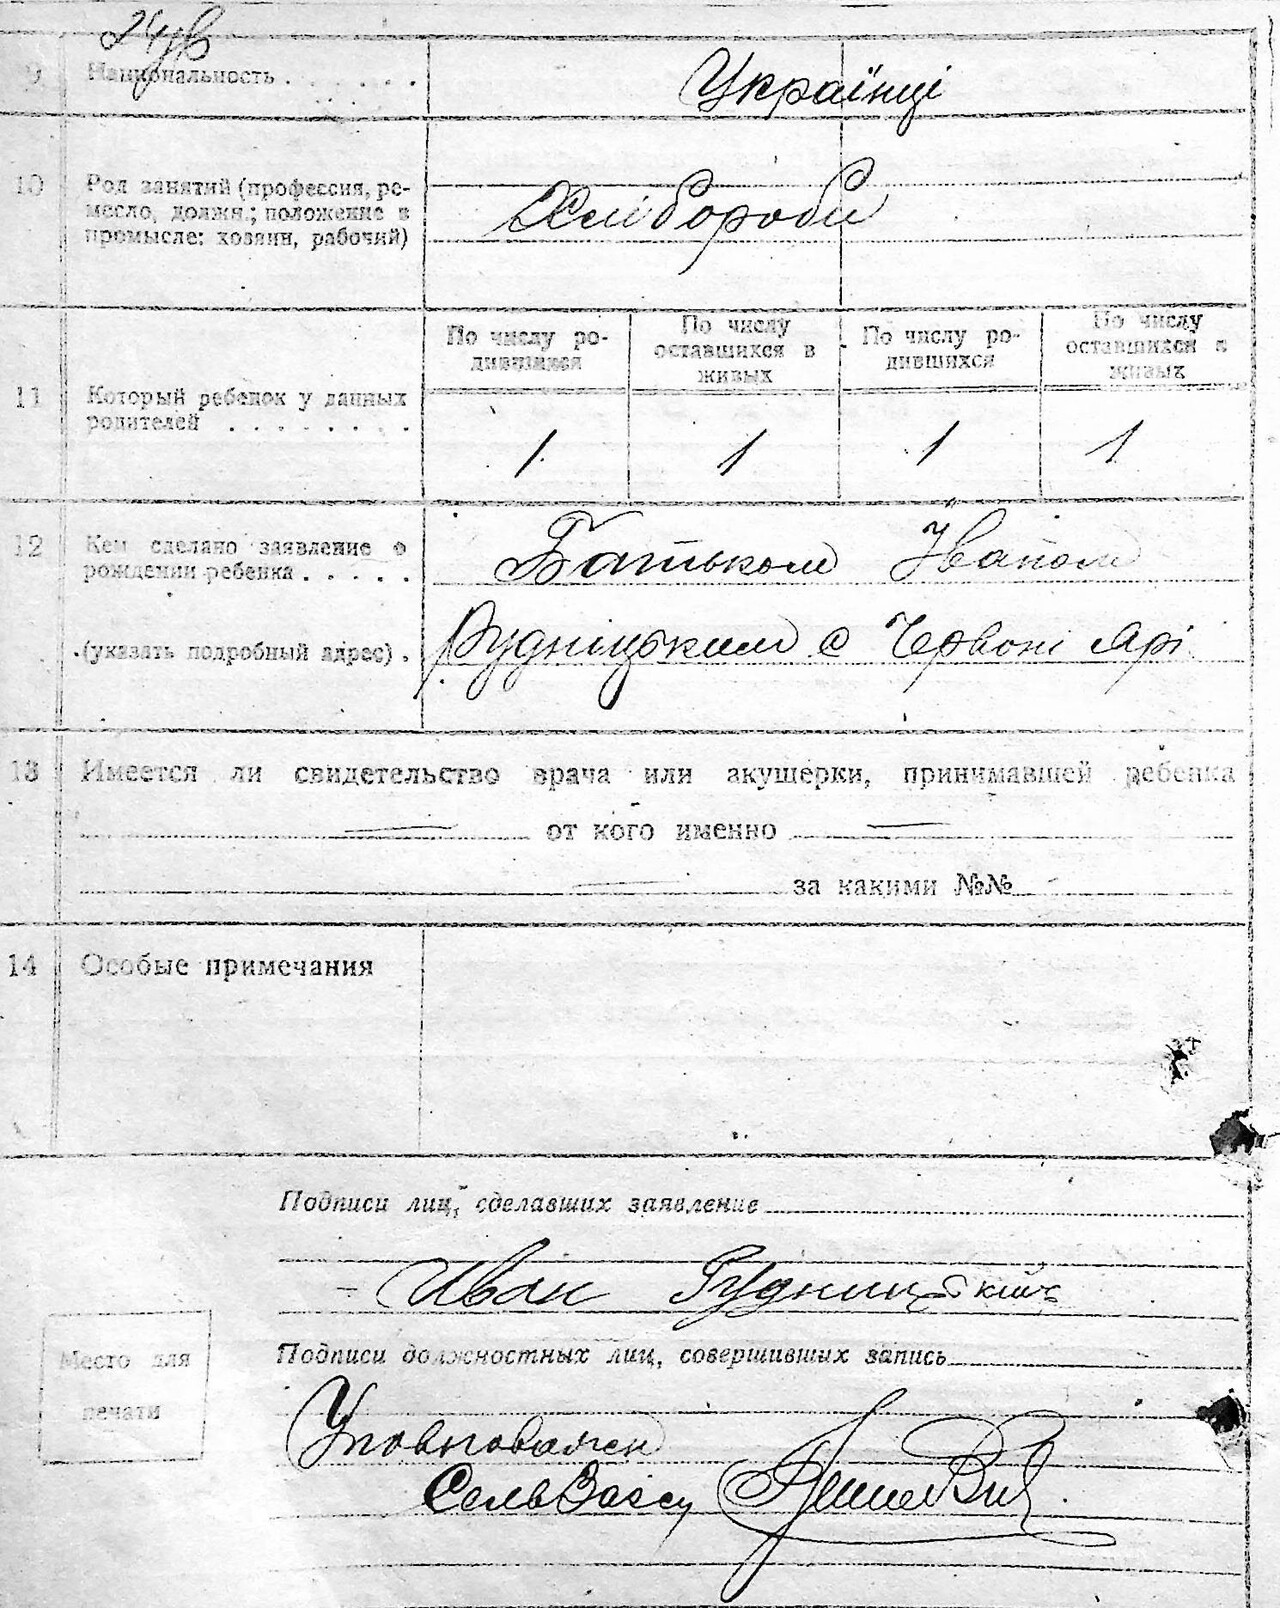 24зв
9 Национальность . . . . . . Українці
10 Род занятий (профессия, ре-
месло, должн.; положение в
промысле: хозяин, рабочий) Хлібороби
По числу ро-
дившихся
По числу
оставшихся в
живых
По числу ро-
дившихся
По числу
оставшихся в
живых
11 Который ребенок у данных
родителей . . . . . . . . 1 1 1 1
12 Кем сделано заявление о
рождении ребенка . . . . . Батьком Іваном
(указать подробный адрес) . Рудніцьким с Червоні Ярі
13 Имеется ли свидетельство врача или акушерки, принимавшей ребенка
— от кого именно —
— за какими №№
14 Особые примечания
Подписи лиц, сделавших заявление
Иван Рудницкий
Место для
печати
Подписи должностных лиц, совершивших запись
Уповноважен
Сельзагсу